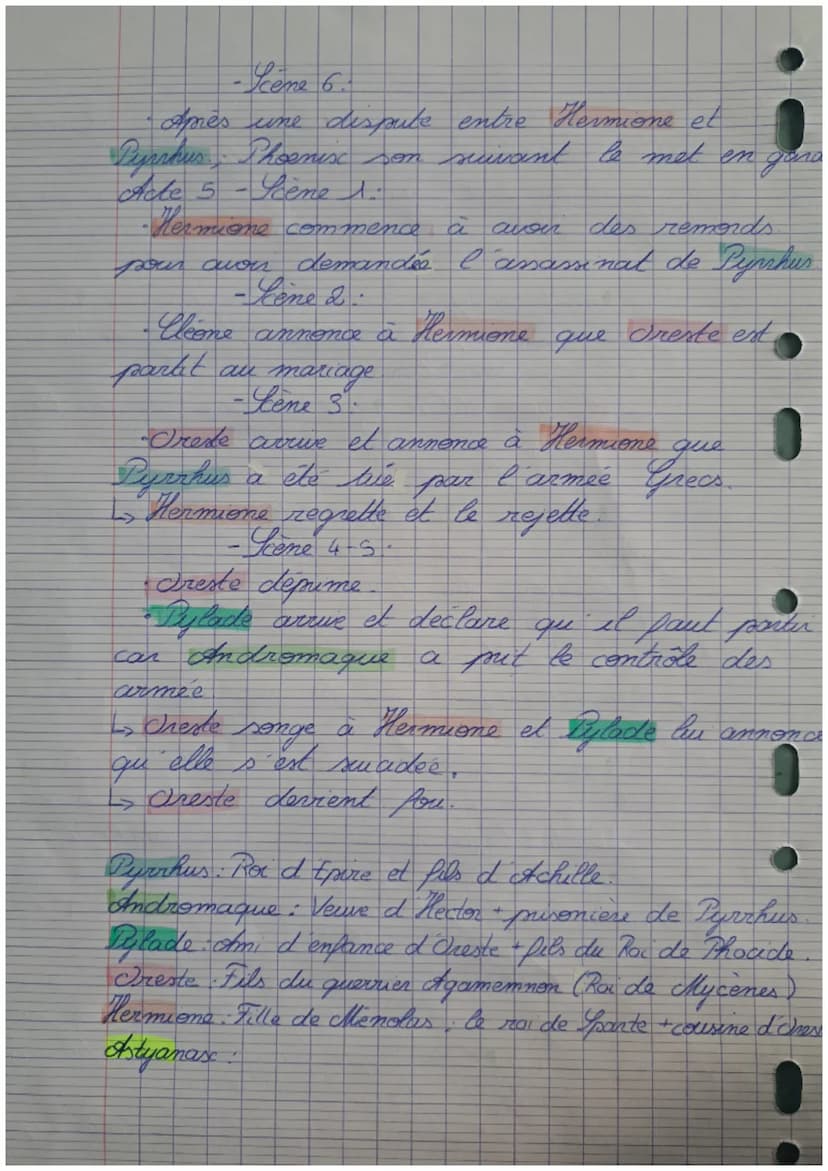 - Scène 6 :
· Après une dispute entre Hermione et
Pyrrhus, Phoenix son suivant le met en gard
Acte 5 - Scène 1 :
· Hermione commence à avoir des remords
pour avoir demandée l'assassinat de Pyrrhus
- Scène 2 :
· Cléone annonce à Hermione que Oreste est
partit au mariage.
- Scène 3 :
· Oreste arrive et annonce à Hermione que
Pyrrhus a été tué par l'armée Grecs.
↳ Hermione regrette et le rejette.
- Scène 4-5 :
· Oreste déprime.
· Pylade arrive et déclare qu'il faut partir
car Andromaque a prit le contrôle des
armée.
↳ Oreste songe à Hermione et Pylade lui annonce
qu'elle s'est suicidée.
↳ Oreste devient fou.
Pyrrhus : Roi d'Epire et fils d'Achille.
Andromaque : Veuve d'Hector + prisonière de Pyrrhus.
Pylade : Ami d'enfance d'Oreste + fils du Roi de Phocide.
Oreste : Fils du guerrier Agamemnon (Roi de Mycènes)
Hermione : Fille de Ménélas, le roi de Sparte + cousine d'Ores
Astyanax :